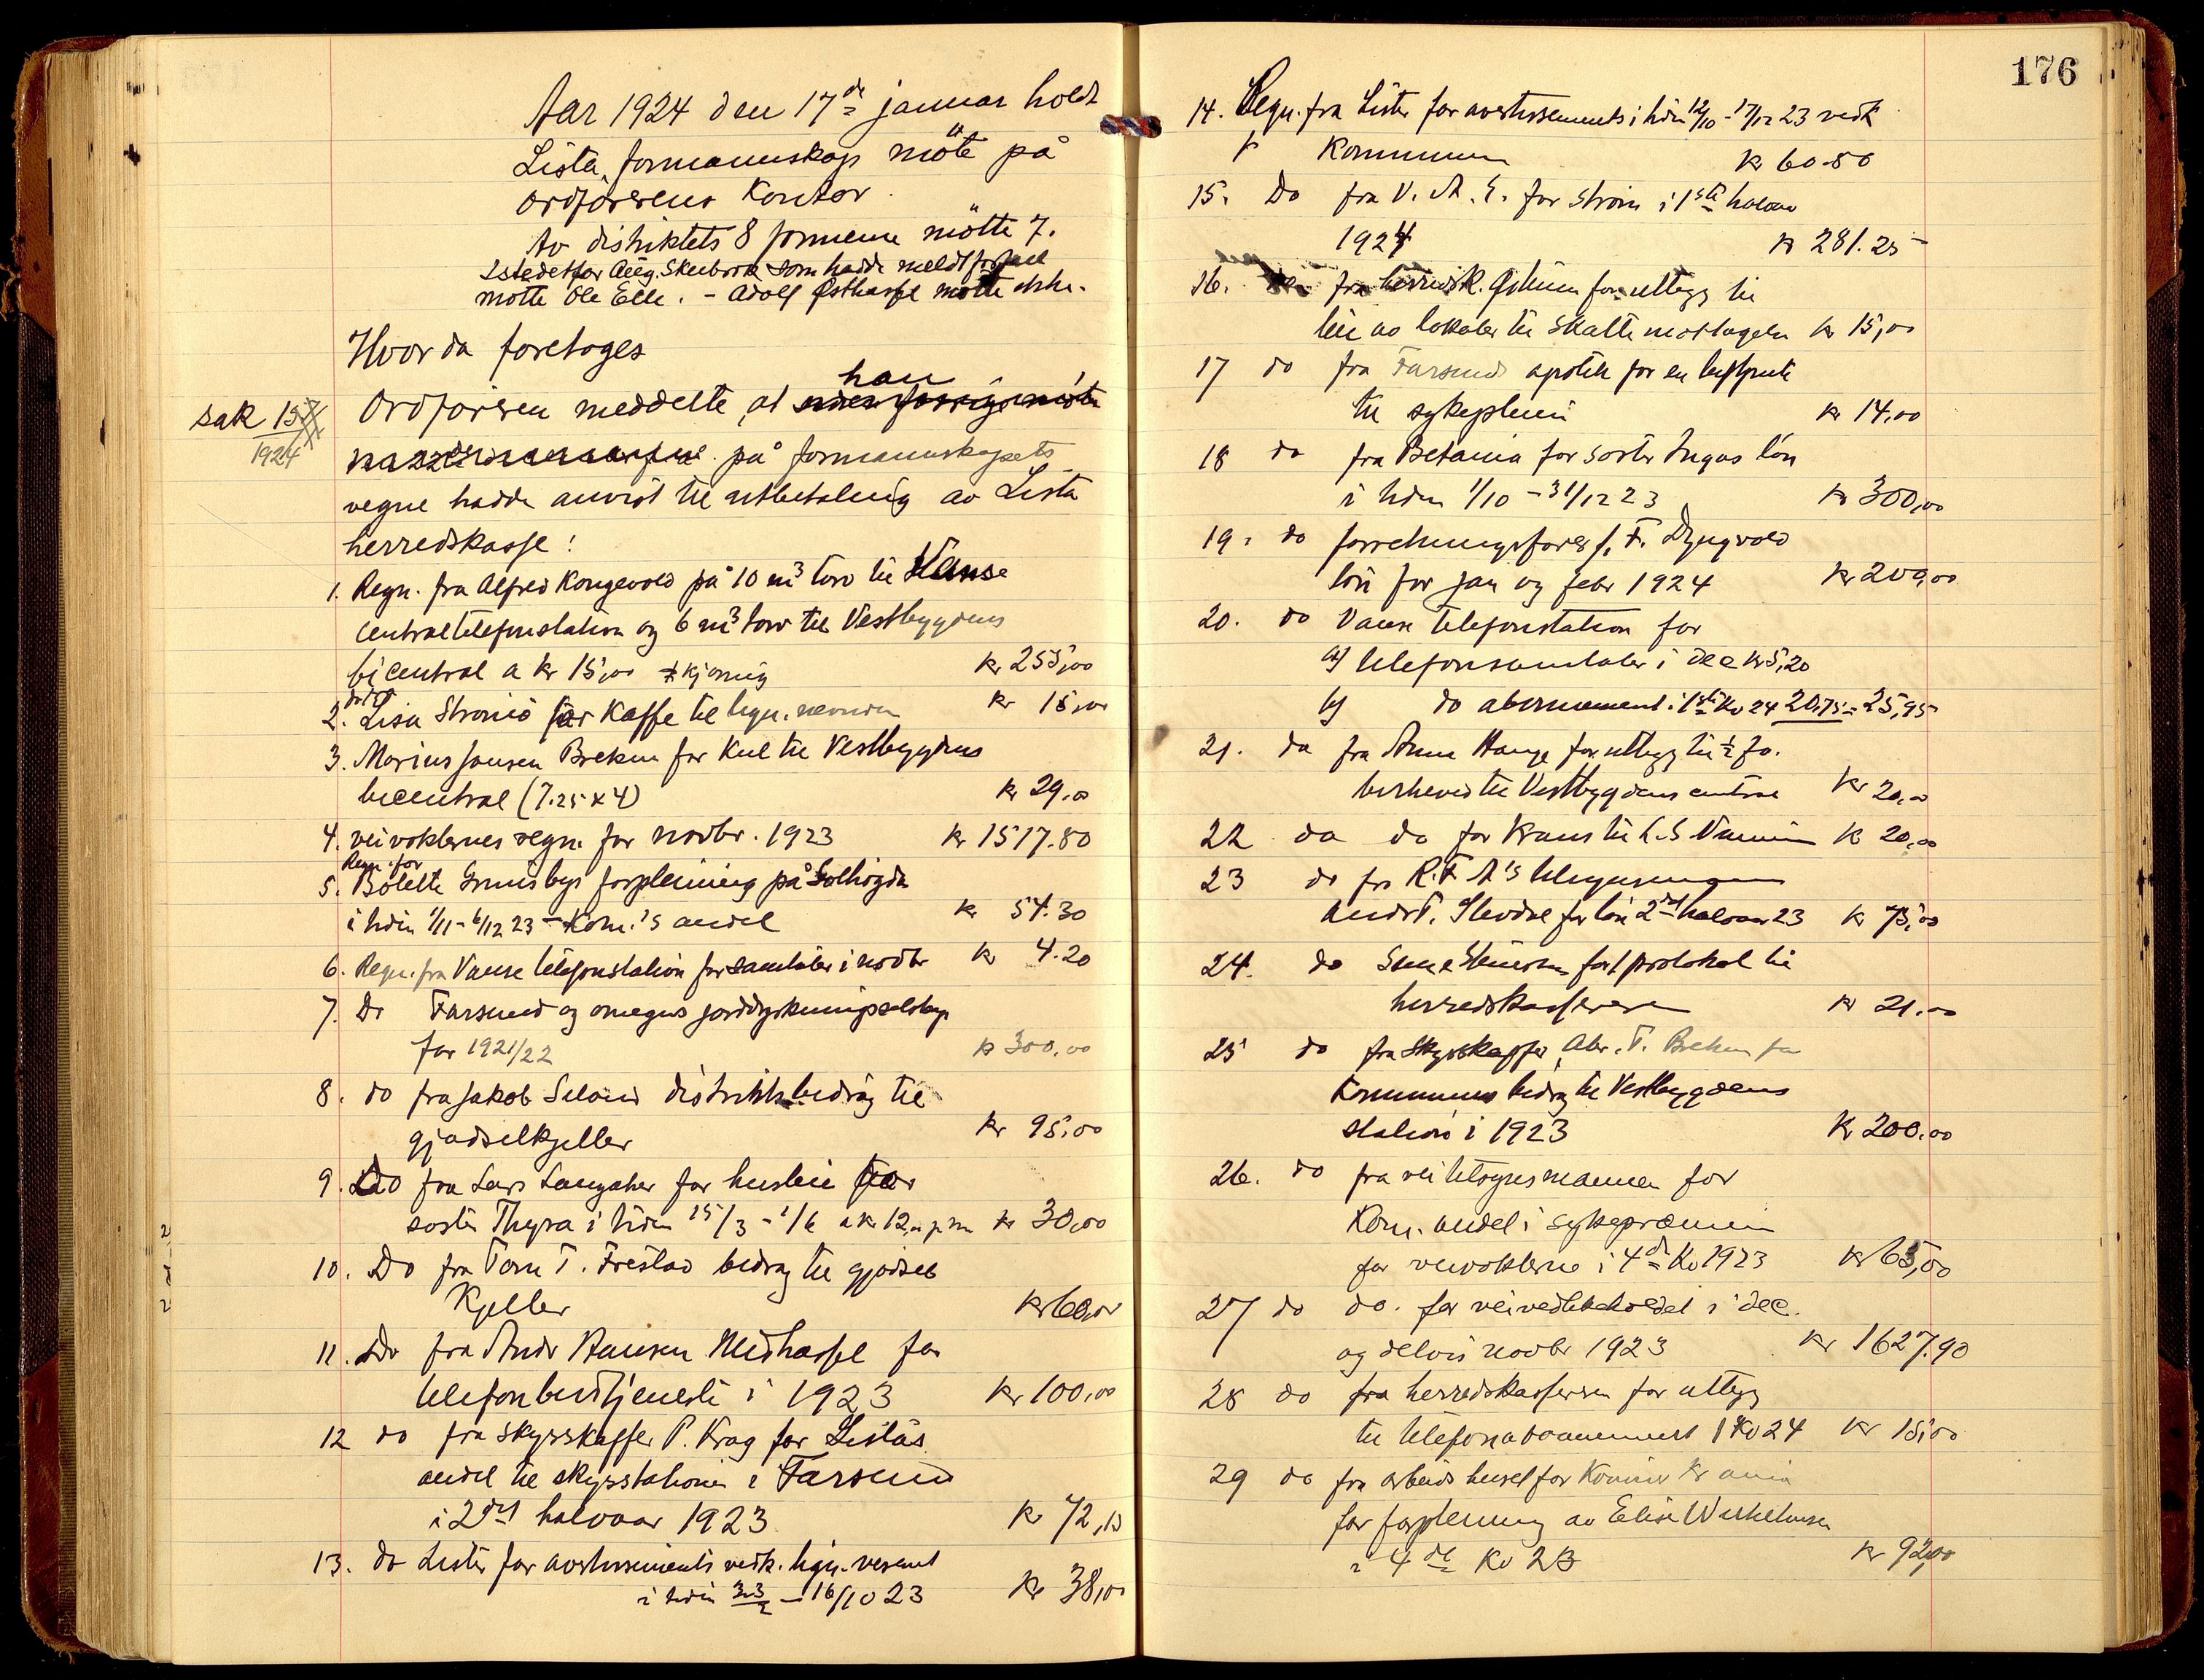 Aar 1924 den 17de januar holdt
Lista formannskap møte på
ordførerens kontor.
Av distriktets 8 formenn møtte 7.
Istedetfor Aug. Skeibrok som hadde meldt forfall
møtte Ole Elle. - Adolf Østhassel møtte ikke.
Hvor da foretoges
sak 13
1924
Ordføreren meddelte, at han
på formannskapets
vegne hadde anvist til utbetaling av Lista
herredskasse:
1. Regn. fra Alfred Kongevold på 10 m3 torv til Vanse
centraltelefonstation og 6 m3 torv til Vestbygdens
bicentral a kr 15,00 + kjøring kr 255,00
2. Lisa Strømø for kaffe til lign.nevnden kr 15,00
3. Marius Jansen Brekne for kul til Vestbygdens
bicentral (7.25 x 4) kr 29.00
4. veivokternes regn. for novbr. 1923 kr 1517.80
Regn. for
5. Bolette Grimsbys forpleining på Solhøgda
i tiden 1/11-6/12 23 - Kom.'s andel kr 54.30
6. Regn. fra Vanse telefonstation for samtaler i novbr kr 4.20
7. Do Farsund og omegns jorddyrkningsselskap
for 1921/22 kr 300.00
8. do fra Jakob Seland distriktsbidrag til
gjødselkjeller kr 95.00
9. Do fra Lars Langaker for husleie for
søster Thyra i tiden 15/3 - 1/6 a kr 12,00 p. m kr 30,00
10. Do fra Tom T. Frestad bidrag til gjødsel
kjeller kr 60,00
11. Do fra Andr Hansen Midhassel for
telefonbudtjeneste i 1923 kr 100,00
12 do fra skysskaffer P. Krag for Listas
andel til skysstationen i Farsund
i 2det halvaar 1923 kr 72,15
13. do Lister for avertissements vedk. lign.vesenet
i tiden - 16/10 23 kr 38,00
176
14. Regn. fra Lister for avertissements i tiden 12/10 - 17/12 23 vedk
kommunen kr 60.80
15. Do fra V. A. E. for strøm i 1ste halvaar
1924 kr 281.25
16. do fra herredsk. for utlegg til
leie av lokaler til skattemottagelse kr 15,00
17 do fra Farsunds apotek for en luftpute
til sykepleien kr 14,00
18 do fra Betania for søster Ingas løn
i tiden 1/10 - 31/12 23 kr 300,00
19. do forretningsfører F. Dyngvold
løn for jan og febr 1924 kr 200,00
20. do Vanse telefonstation for
a) telefonsamtaler i dec kr 5,20
b) do abonnement i 1ste kv 24 20,75 = 25,95
21. do fra Anna Hauge for utlegg til 1/2 fv.
birkeved til Vestbygdens central kr 20,00
22 do do for krans til kr 20,00
23 do fra R.T.A's
Andr T. for løn 2det halvaar 23 kr 75,00
24. do for 1 protokol til
herredskassereren kr 21.00
25 do fra skysskaffer Abr. T. Brekne for
kommunens bidrag til Vestbygdens
station i 1923 kr 200.00
26. do fra veitilsynsmannen for
kom. andel i sykepræmien
for veivokterne i 4de kv 1923 kr 63,00
27 do do. for veivedlikeholdet i dec.
og delvis novbr 1923 kr 1627.90
28 do fra herredskassereren for utlegg
til telefonabonnement 1ste kv 24 kr 15,00
29 do fra arbeidshuset for kvinner Kr.ania
for forpleining av Elise Wilhelmsen
i 4de kv 23 kr 92,00